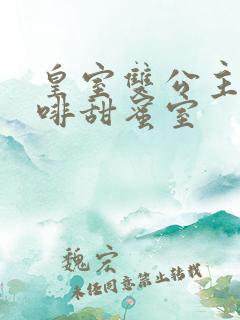 皇室雙公主
啡甜蜜室
魏宏
未任同意禁止转载